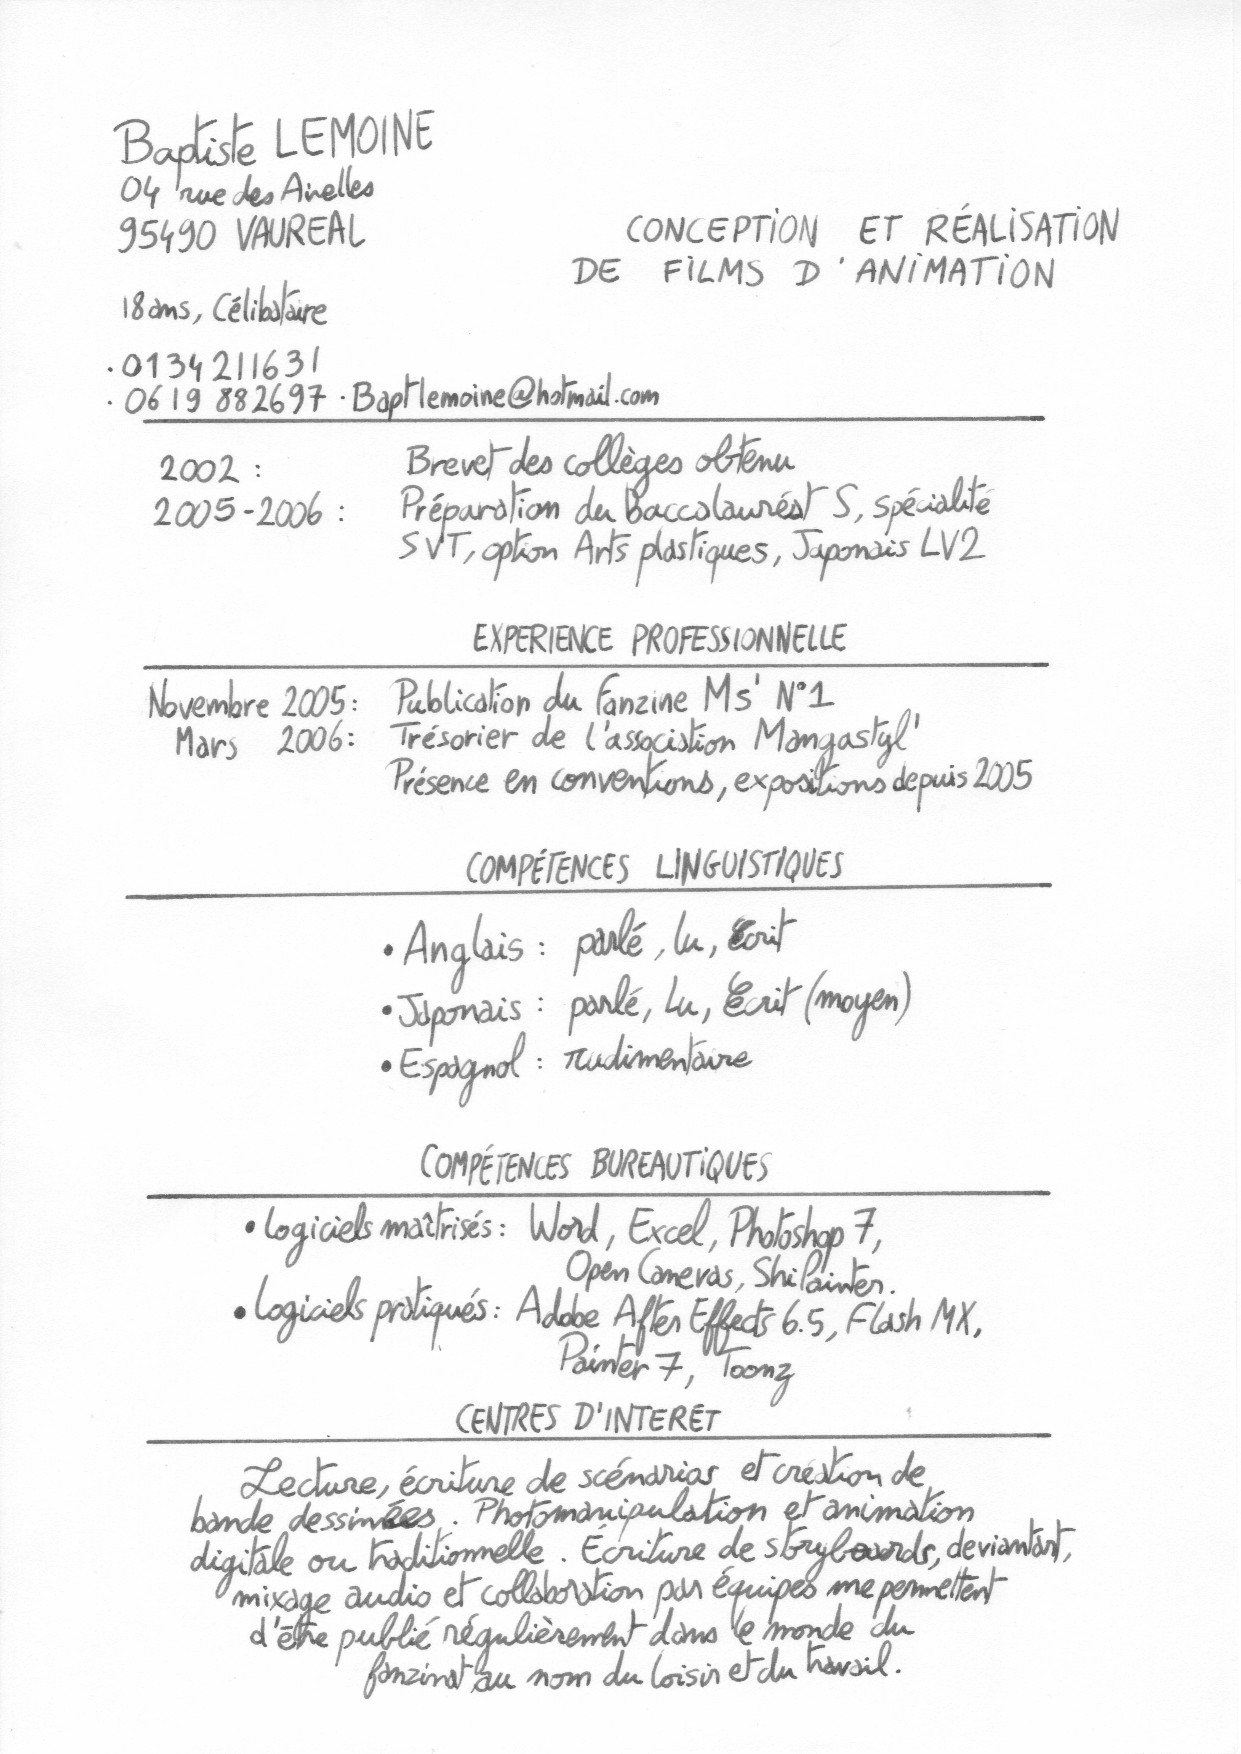 Baptiste LEMOINE
04 rue des Airelles
95490 VAUREAL
CONCEPTION ET RÉALISATION
DE FILMS D'ANIMATION
18 ans, Célibataire
· 0134211631
· 0619 882697 · Baptlemoine@hotmail.com
2002 : Brevet des collèges obtenu
2005-2006 : Préparation du Baccalauréat S, spécialité
SVT, option Arts plastiques, Japonais LV2
EXPERIENCE PROFESSIONNELLE
Novembre 2005 : Publication du Fanzine Ms' N°1
Mars 2006 : Trésorier de l'association Mangastyl'
Présence en conventions, expositions depuis 2005
COMPÉTENCES LINGUISTIQUES
• Anglais : parlé, lu, Écrit
• Japonais : parlé, Lu, Écrit (moyen)
• Espagnol : rudimentaire
COMPÉTENCES BUREAUTIQUES
• Logiciels maîtrisés : Word, Excel, Photoshop 7,
Open Canevas, ShiPainter.
• Logiciels pratiqués : Adobe After Effects 6.5, Flash MX,
Painter 7, Toonz
CENTRES D'INTERET
Lecture, écriture de scénarios et création de
bande dessinées. Photomanipulation et animation
digitale ou traditionnelle. Écriture de storyboards, deviantart,
mixage audio et collaboration par équipes me permettent
d'être publié régulièrement dans le monde du
fanzinat au nom du loisir et du travail.